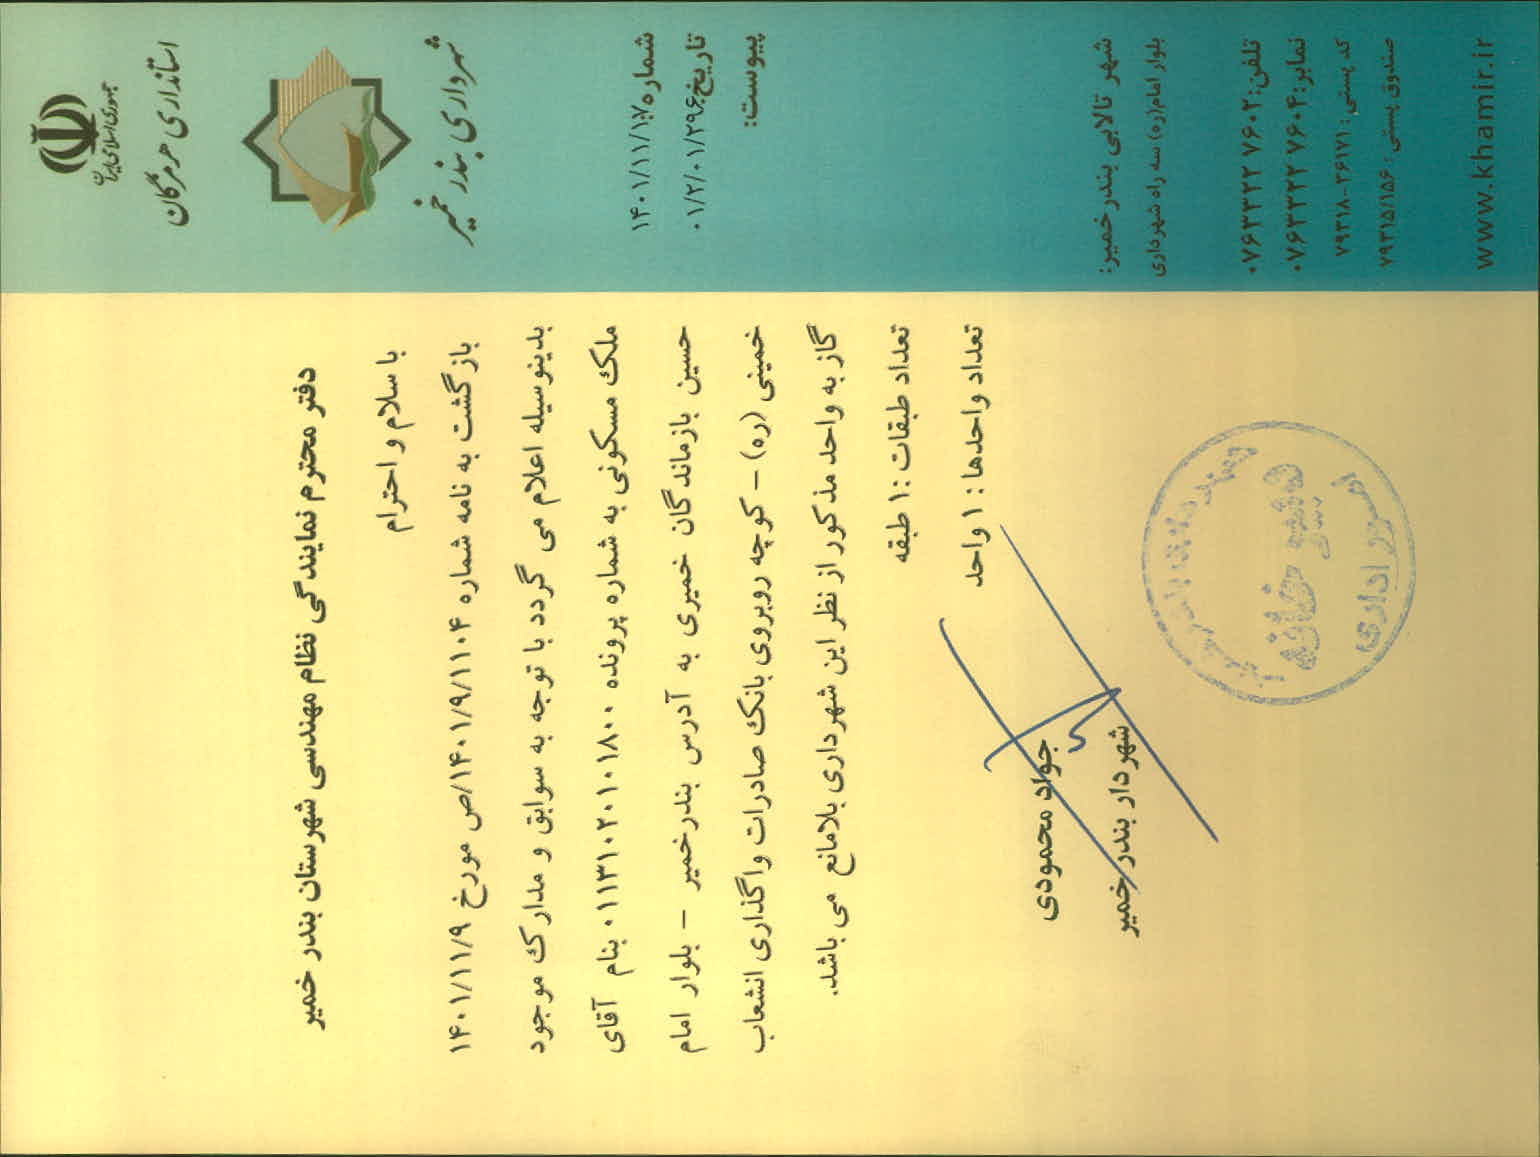 جمهوری اسلامی ایران
استانداری هرمزگان
شهرداری بندر خمیر
شماره:
۱۴۰۱/۱۱/۱۷
تاریخ:
پیوست:
دفتر محترم نمایندگی نظام مهندسی شهرستان بندر خمیر
با سلام و احترام
بازگشت به نامه شماره ۱۴۰۱/۹/۱۱۰۴/ص مورخ ۱۴۰۱/۱۱/۹
بدینوسیله اعلام می گردد با توجه به سوابق و مدارک موجود
ملک مسکونی به شماره پرونده ۰۱۱۳۱۰۲۰۱۰۱۸۰۰ بنام آقای
حسین بازماندگان خمیری به آدرس بندرخمیر – بلوار امام
خمینی (ره) – کوچه روبروی بانک صادرات واگذاری انشعاب
گاز به واحد مذکور از نظر این شهرداری بلامانع می باشد.
تعداد طبقات :۱ طبقه
تعداد واحدها : ۱ واحد
جواد محمودی
شهردار بندر خمیر
دبیر خانه
امور اداری
شهر تالابی بندر خمیر:
بلوار امام(ره) سه راه شهرداری
تلفن: ۰۷۶۳۳۲۲۷۶۰۲
نمابر: ۰۷۶۳۳۲۲۷۶۰۴
کد پستی: ۷۹۳۱۸-۲۶۱۷۱
صندوق پستی: ۷۹۳۱۵/۱۵۶
www.khamir.ir